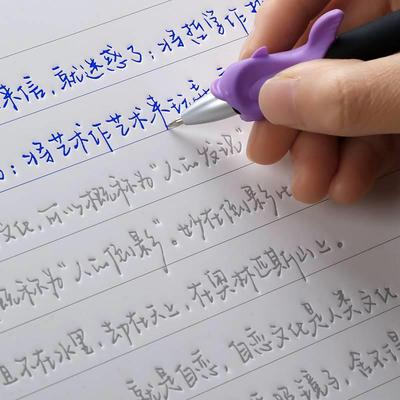 来信,就迷惑了;将哲学作
:将艺术作艺术来玩弄
文化,可以概称为“人的发说”
概称为“人的倒影”。妙在倒影比
且不在水里,却在天上,在奥林匹斯山上。
就是自恋,自恋文化是人类文化
照镜子,舍不得